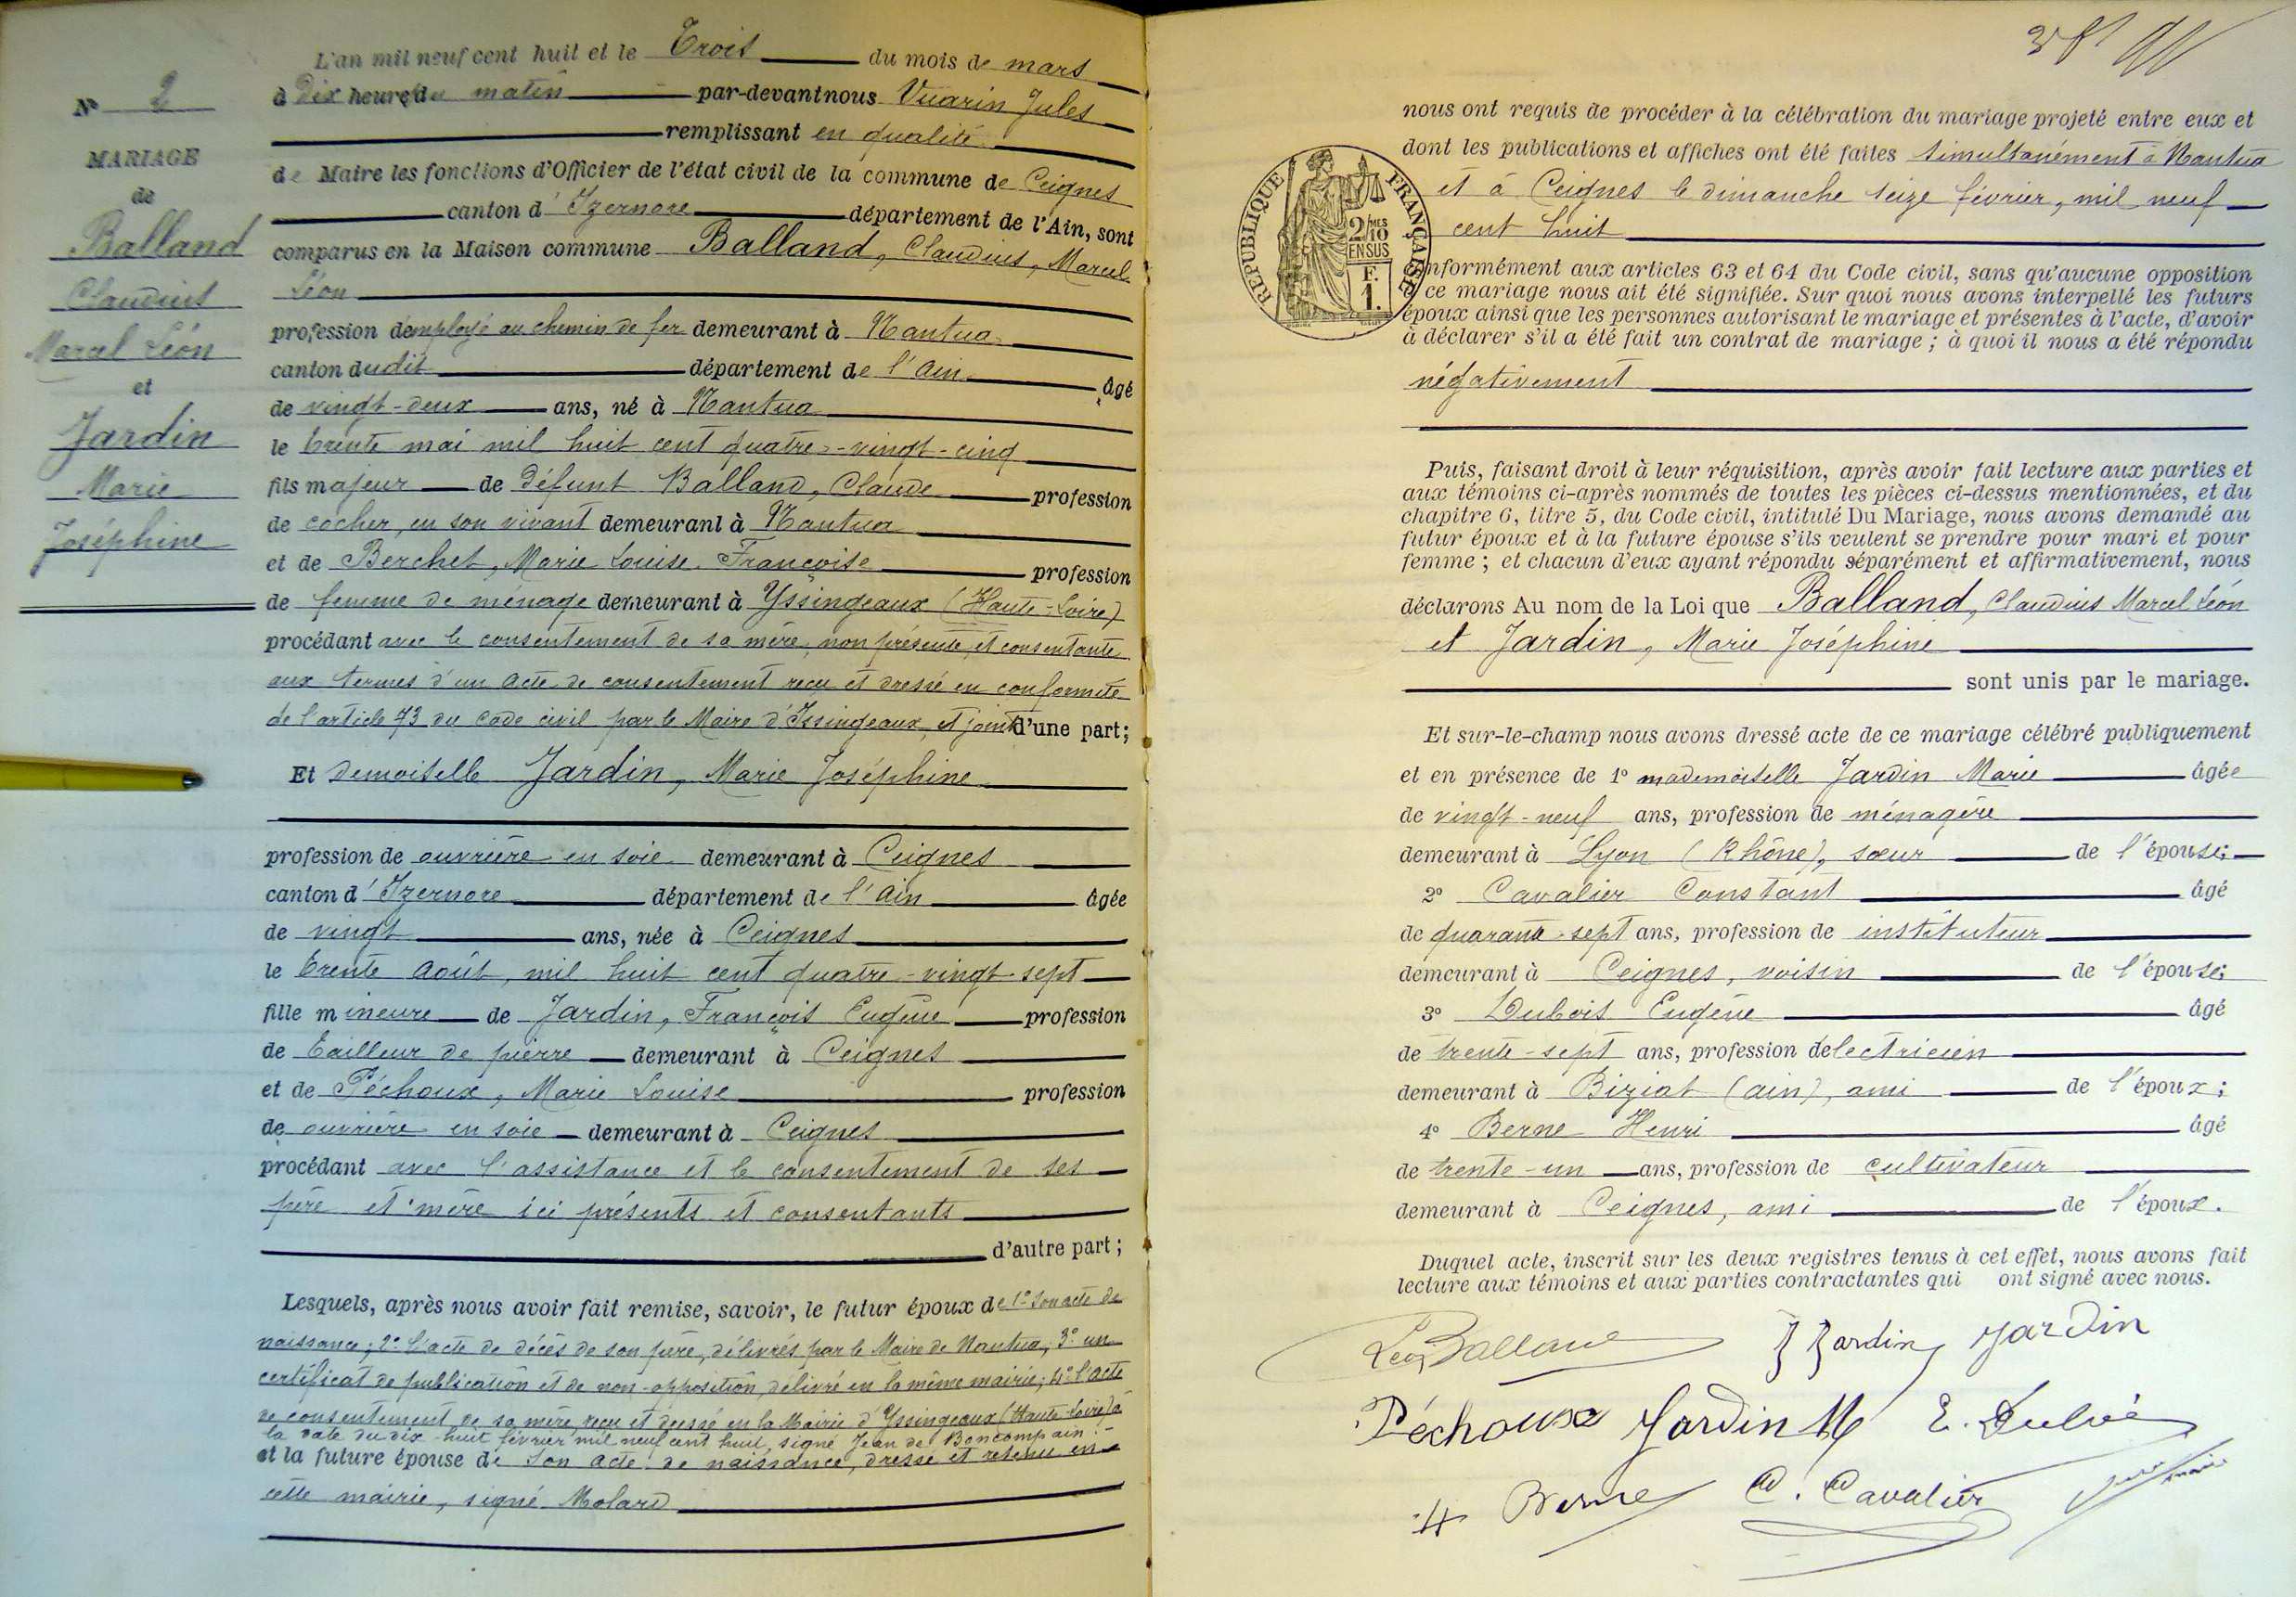 N° 2
MARIAGE
de
Balland
Claudius
Marcel Léon
et
Jardin
Marie
Joséphine
L'an mil neuf cent huit et le Trois du mois de mars
à Dix heures du matin par-devant nous Vuarin Jules
remplissant en qualité
de Maire les fonctions d'Officier de l'état civil de la commune de Ceignes
canton d'Izernore département de l'Ain, sont
comparus en la Maison commune Balland, Claudius, Marcel
Léon
profession d'employé au chemin de fer demeurant à Nantua
canton dudit département de l'Ain âgé
de vingt-deux ans, né à Nantua
le trente mai mil huit cent quatre-vingt-cinq
fils majeur de défunt Balland, Claude profession
de cocher, en son vivant demeurant à Nantua
et de Berchet, Marie Louise Françoise profession
de femme de ménage demeurant à Yssingeaux (Haute-Loire)
procédant avec le consentement de sa mère, non présente, et consentante
aux termes d'un acte de consentement reçu et dressé en conformité
de l'article 73 du code civil par le Maire d'Issingeaux, et joint d'une part;
Et Demoiselle Jardin, Marie Joséphine
profession de ouvrière en soie demeurant à Ceignes
canton d'Izernore département de l'Ain âgée
de vingt ans, née à Ceignes
le trente Août, mil huit cent quatre-vingt-sept
fille mineure de Jardin, François Eugène profession
de tailleur de pierre demeurant à Ceignes
et de Péchoux, Marie Louise profession
de ouvrière en soie demeurant à Ceignes
procédant avec l'assistance et le consentement de ses
père et mère ici présents et consentants
d'autre part;
Lesquels, après nous avoir fait remise, savoir, le futur époux de 1° son acte de
naissance; 2° l'acte de décès de son père, délivrés par le Maire de Nantua; 3° un
certificat de publication et de non-opposition, délivré en la même mairie; 4° l'acte
de consentement de sa mère, reçu et dressé en la Mairie d'Yssingeaux (Haute-Loire) à
la date du dix-huit février mil neuf cent huit, signé Jean de Boncompain.-
et la future épouse de son acte de naissance, dressé et retenu en
cette mairie, signé Molard
nous ont requis de procéder à la célébration du mariage projeté entre eux et
dont les publications et affiches ont été faites simultanément à Nantua
et à Ceignes le dimanche seize février, mil neuf
cent huit
RÉPUBLIQUE FRANÇAISE
2/10 MES
EN SUS
F.
1.
onformément aux articles 63 et 64 du Code civil, sans qu'aucune opposition
à ce mariage nous ait été signifiée. Sur quoi nous avons interpellé les futurs
époux ainsi que les personnes autorisant le mariage et présentes à l'acte, d'avoir
à déclarer s'il a été fait un contrat de mariage; à quoi il nous a été répondu
négativement
Puis, faisant droit à leur réquisition, après avoir fait lecture aux parties et
aux témoins ci-après nommés de toutes les pièces ci-dessus mentionnées, et du
chapitre 6, titre 5, du Code civil, intitulé Du Mariage, nous avons demandé au
futur époux et à la future épouse s'ils veulent se prendre pour mari et pour
femme; et chacun d'eux ayant répondu séparément et affirmativement, nous
déclarons Au nom de la Loi que Balland, Claudius Marcel Léon
et Jardin, Marie Joséphine
sont unis par le mariage.
Et sur-le-champ nous avons dressé acte de ce mariage célébré publiquement
et en présence de 1° mademoiselle Jardin Marie âgée
de vingt-neuf ans, profession de ménagère
demeurant à Lyon (Rhône), sœur de l'épouse;
2° Cavalier Constant âgé
de quarante-sept ans, profession de instituteur
demeurant à Ceignes, voisin de l'épouse;
3° Dubois Eugène âgé
de trente-sept ans, profession délectricien
demeurant à Biziat (ain), ami de l'époux;
4° Berne Henri âgé
de trente-un ans, profession de cultivateur
demeurant à Ceignes, ami de l'époux.
Duquel acte, inscrit sur les deux registres tenus à cet effet, nous avons fait
lecture aux témoins et aux parties contractantes qui ont signé avec nous.
Léon Balland J Jardin Jardin
Péchoux Jardin M E. Dubois
H Berne C. Cavalier